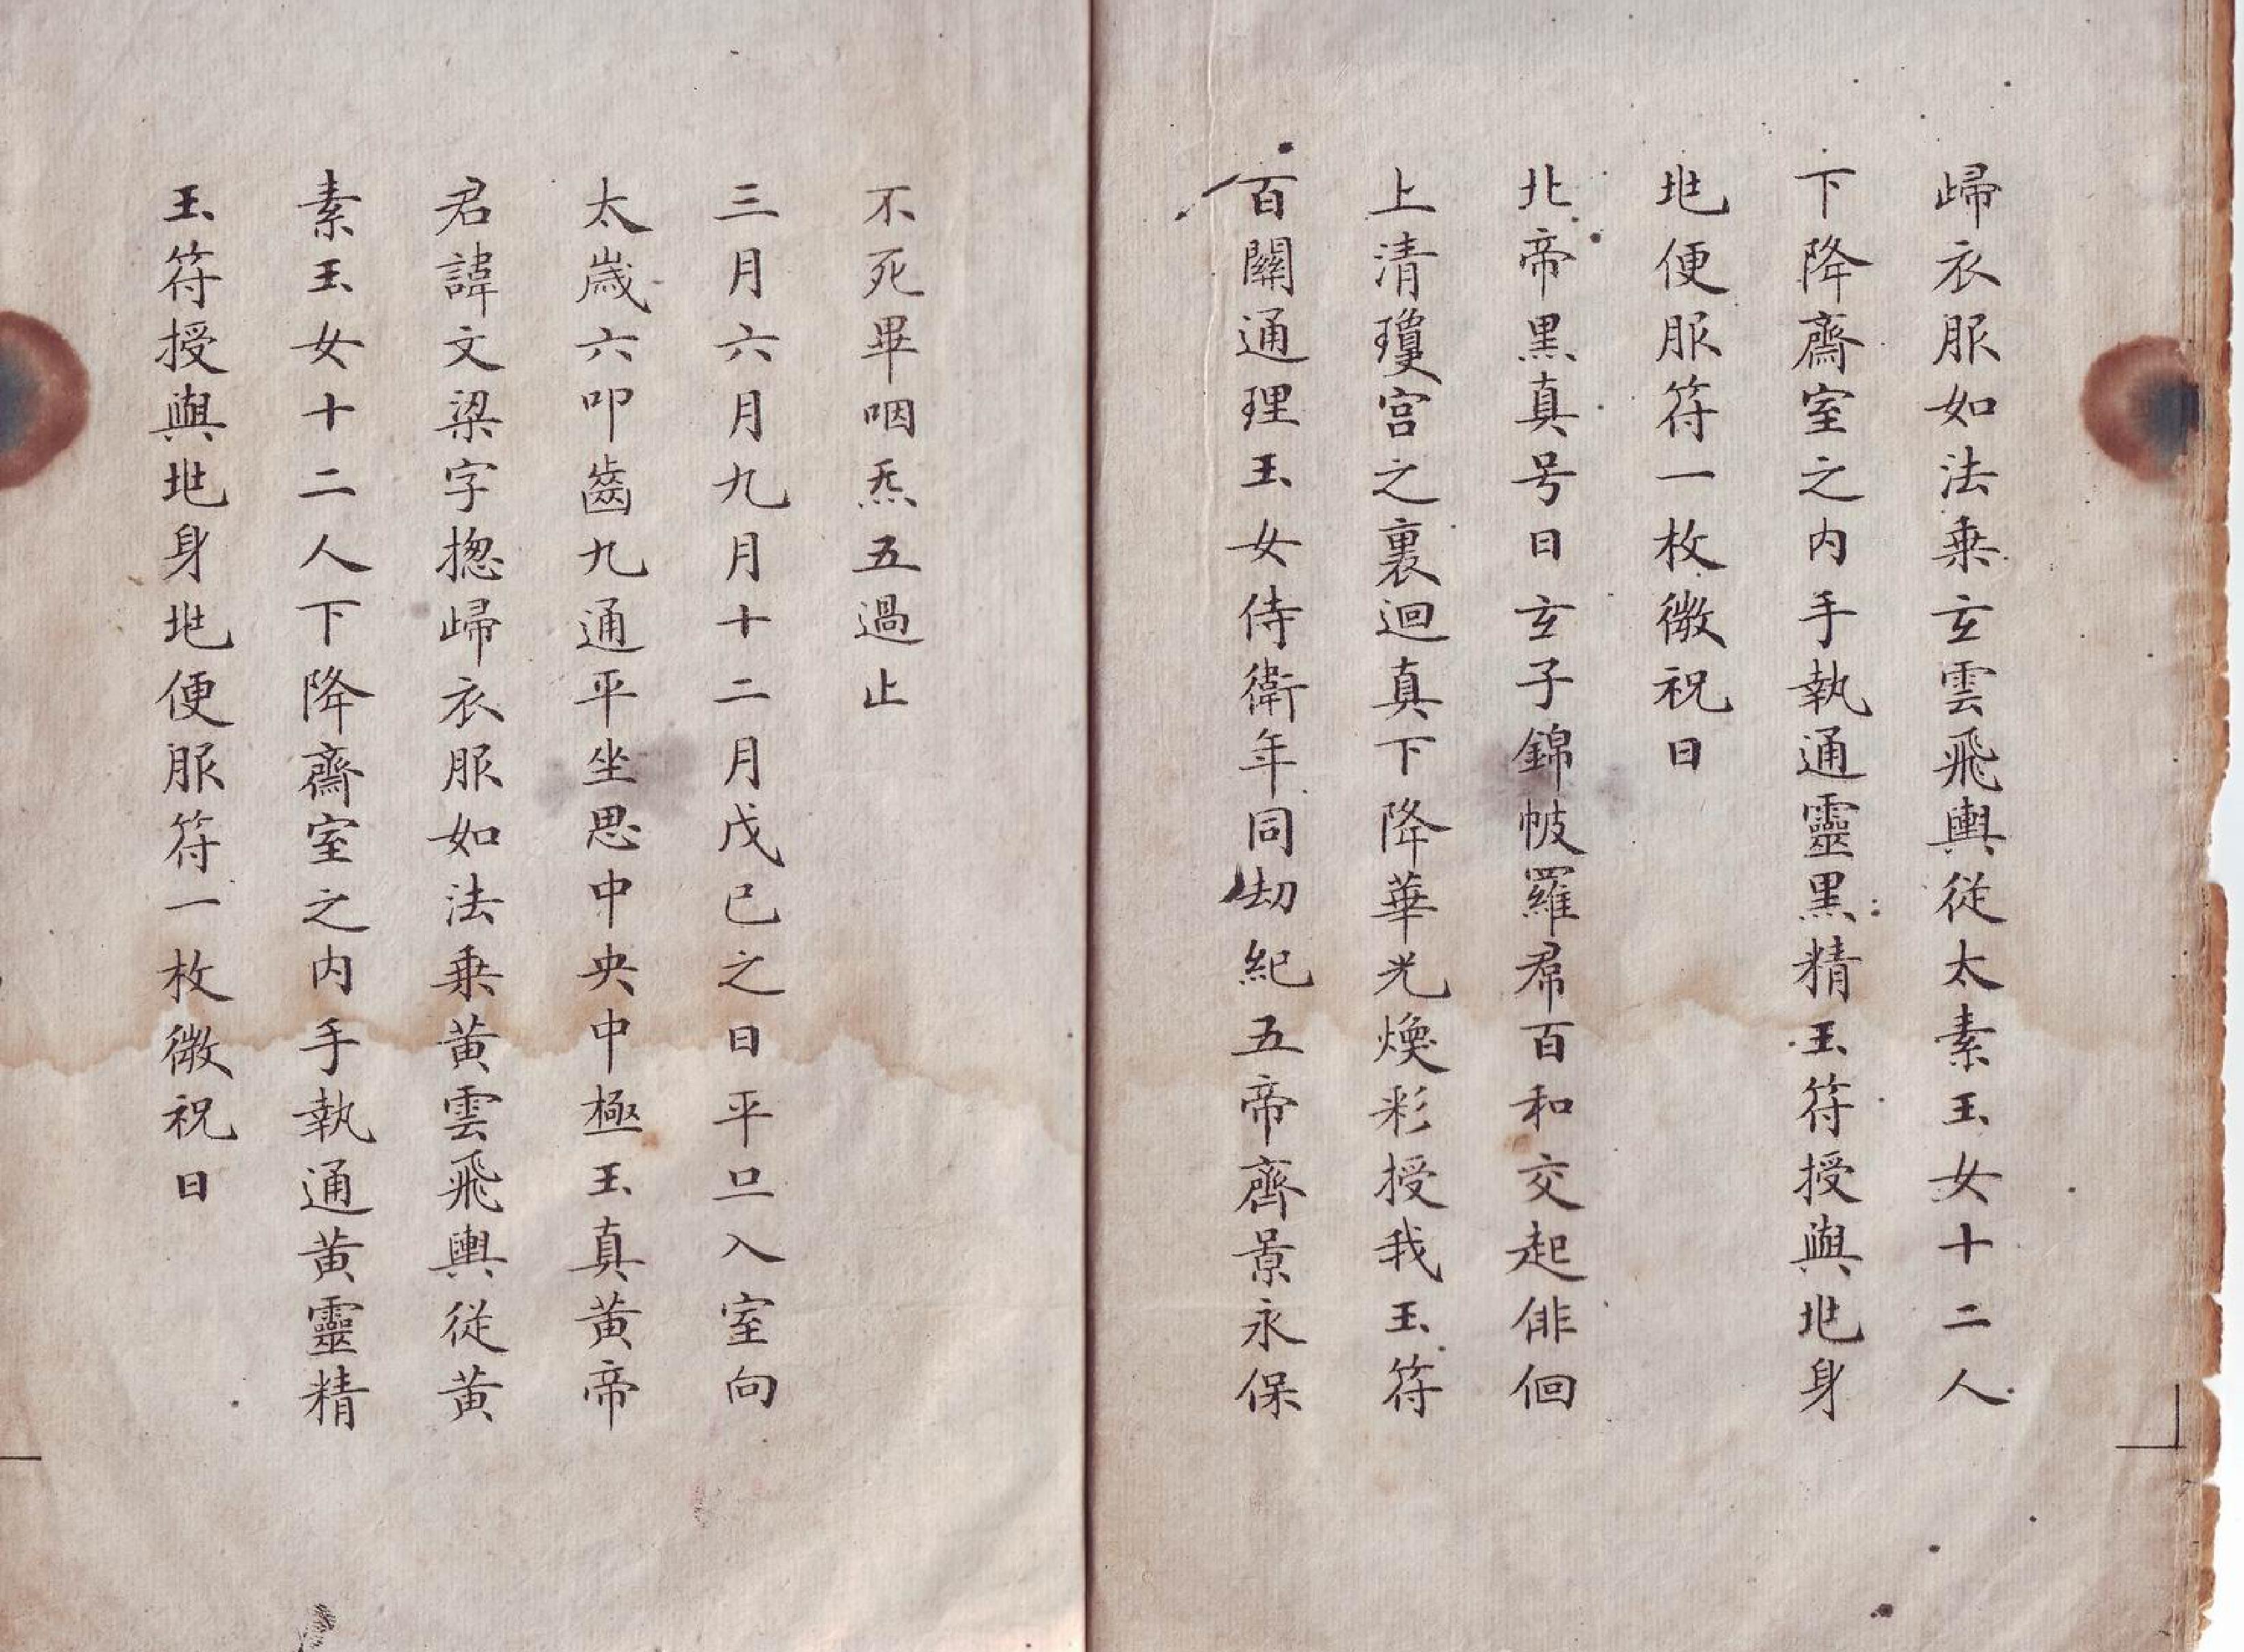 歸衣服如法乗玄雲飛輿從太素玉女十二人
下降齋室之内手執通靈黒精玉符授與兆身
兆便服符一枚微祝曰
北帝黒真号曰玄子錦帔羅帬百和交起俳佪
上清瓊宮之裏迴真下降華光煥彩授我玉符
百關通理玉女侍衛年同劫紀五帝齊景永保
不死畢咽炁五過止
三月六月九月十二月戊己之日平旦入室向
太歳六叩齒九通平坐思中央中極玉真黄帝
君諱文梁字揔歸衣服如法乗黄雲飛輿從黄
素玉女十二人下降齋室之内手執通黄靈精
玉符授與兆身兆便服符一枚微祝曰